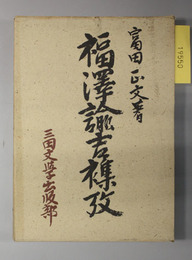 富田正文著
福澤諭吉襍攷
三田文學出版部
19550